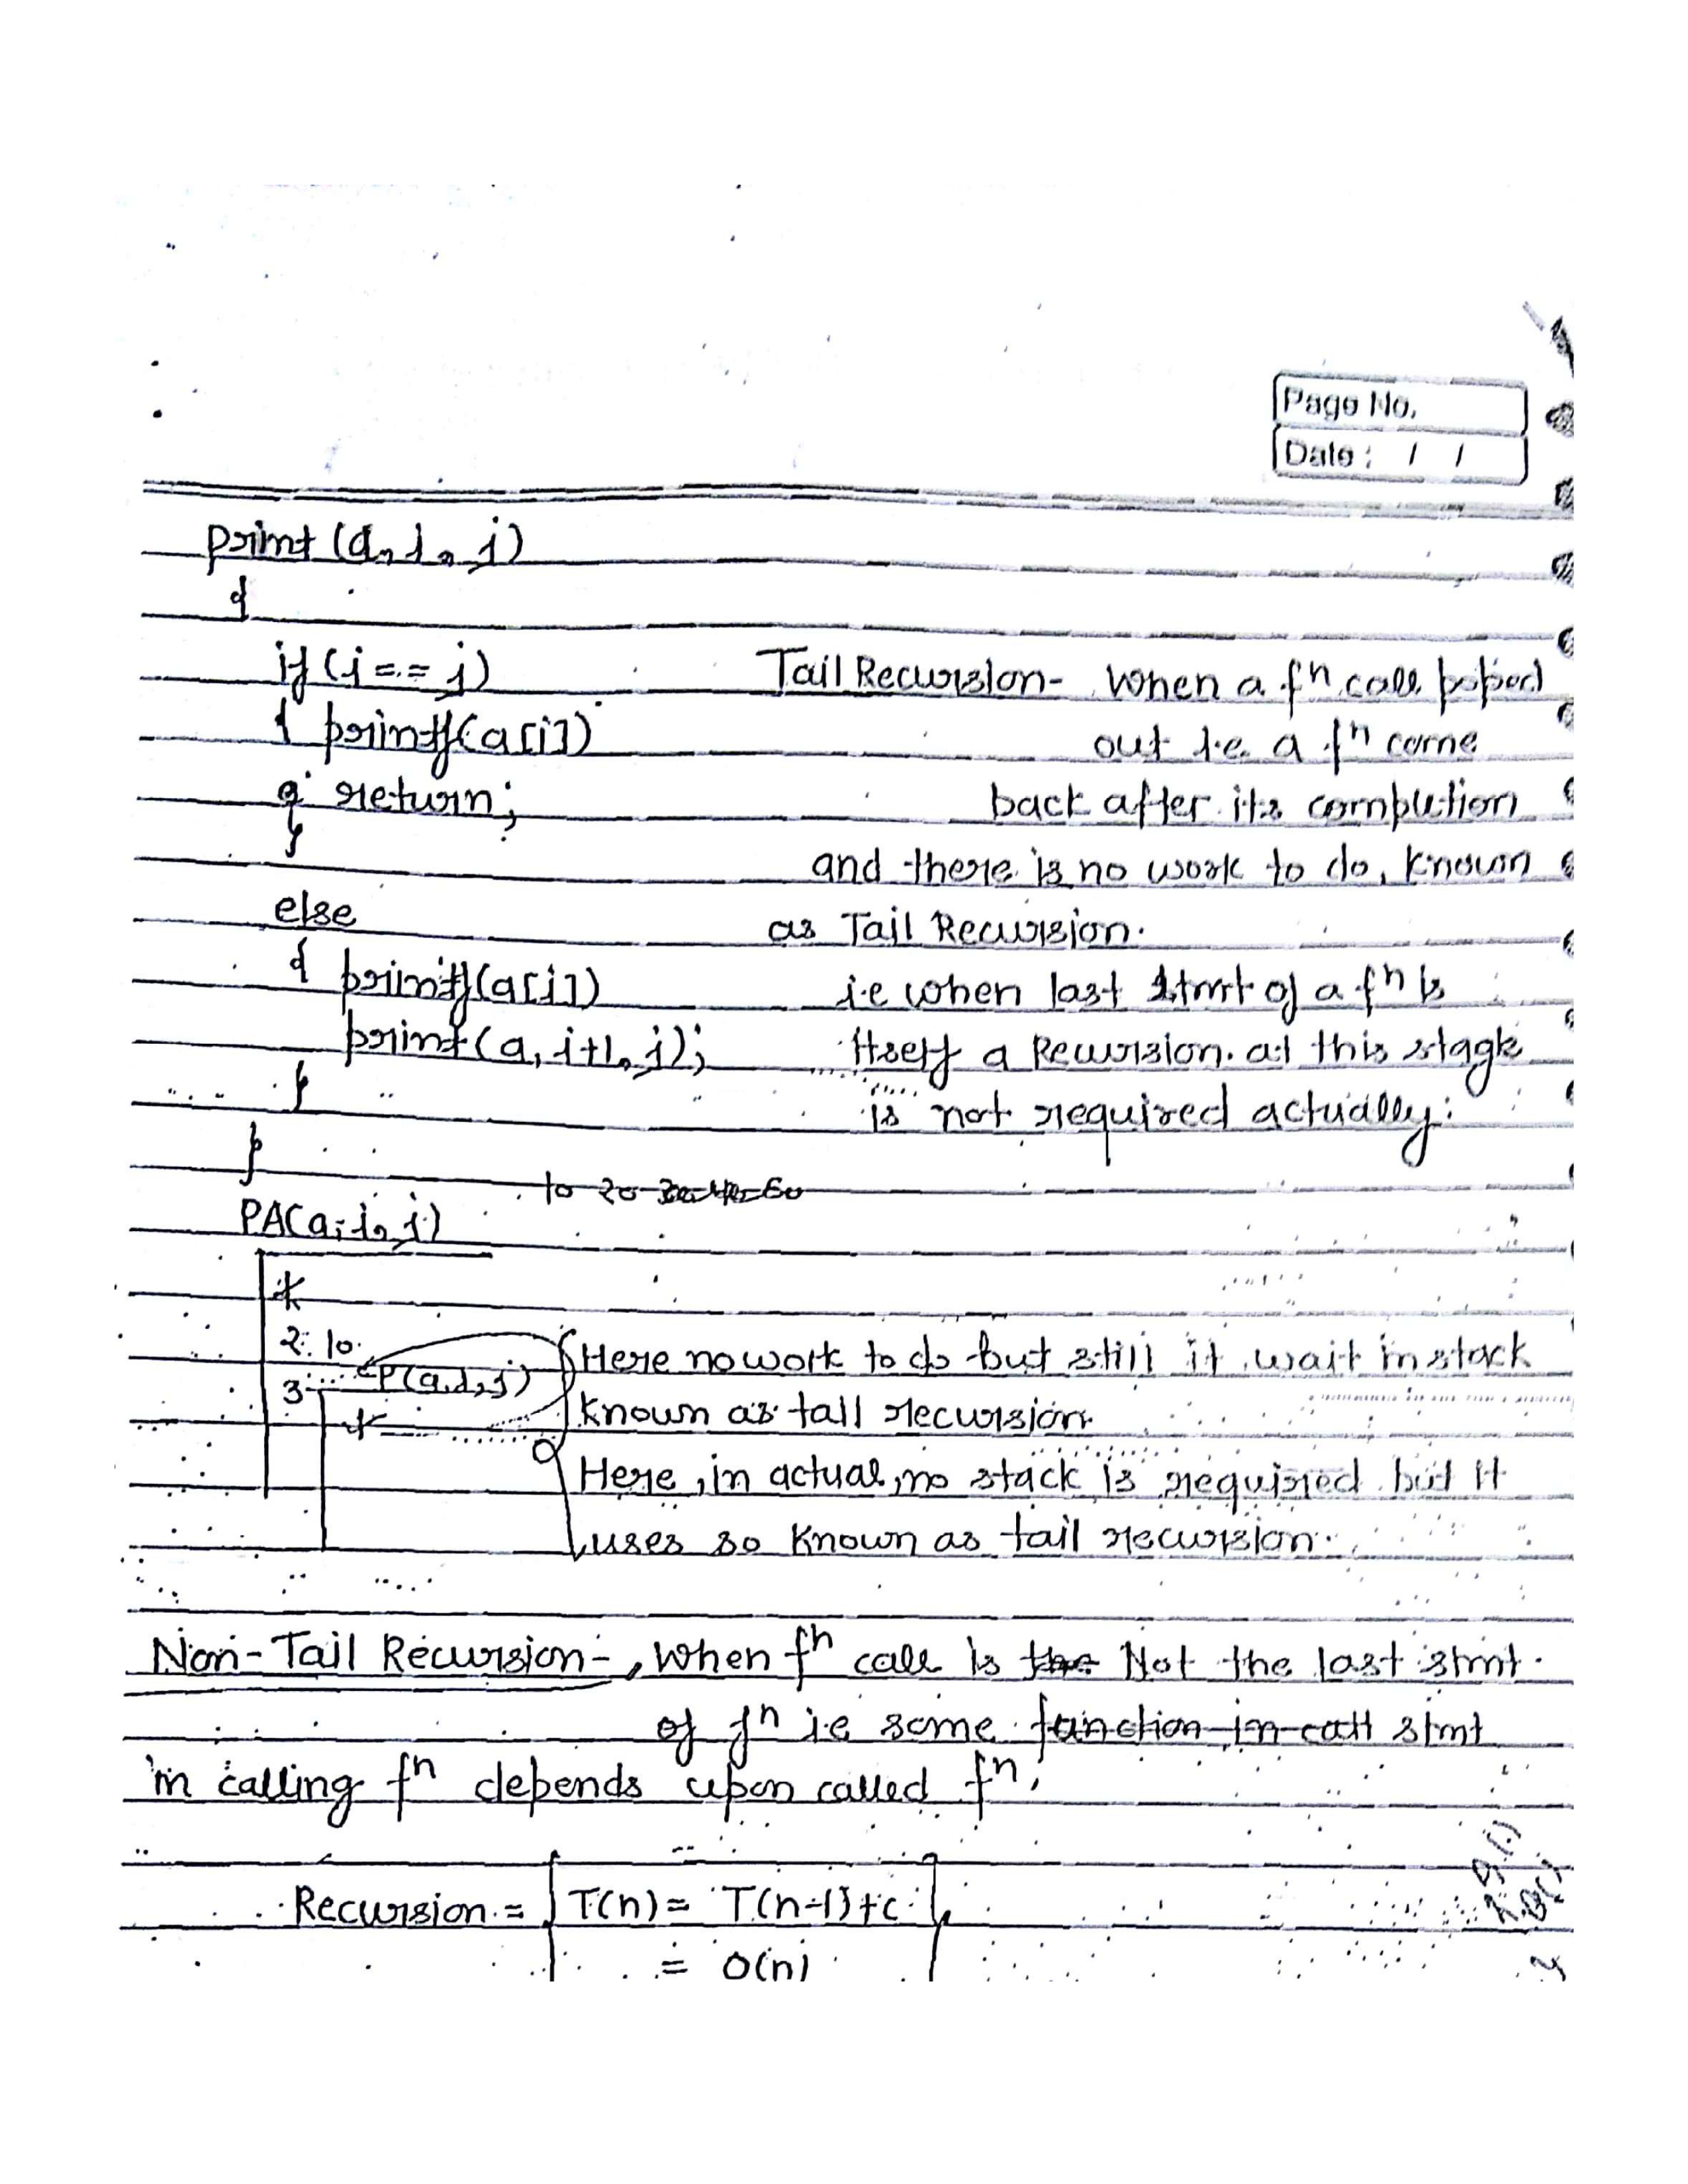 Page No.
Date: / /
print (a, i, j)
{
if (i == j)
Tail Recursion- When a fⁿ call poped
{ printf(a[i])
out i.e. a fⁿ come
return;
back after its completion
}
and there is no work to do, known
else
as Tail Recursion.
{ printf(a[i])
i.e when last stmt of a fⁿ is
print(a, i+1, j);
itself a Recursion. at this stage
}
is not required actually.
}
10 20 30 40 50
PA(a, i, j)
2. 10
Here no work to do but still it wait in stack
3 P(a, i, j)
known as tail recursion
Here, in actual, no stack is required but it
uses so known as tail recursion.
Non-Tail Recursion-, When fⁿ call is the Not the last stmt.
of fⁿ i.e some function in call stmt
in calling fⁿ depends upon called fⁿ.
Recursion = T(n) = T(n-1)+c
= O(n)